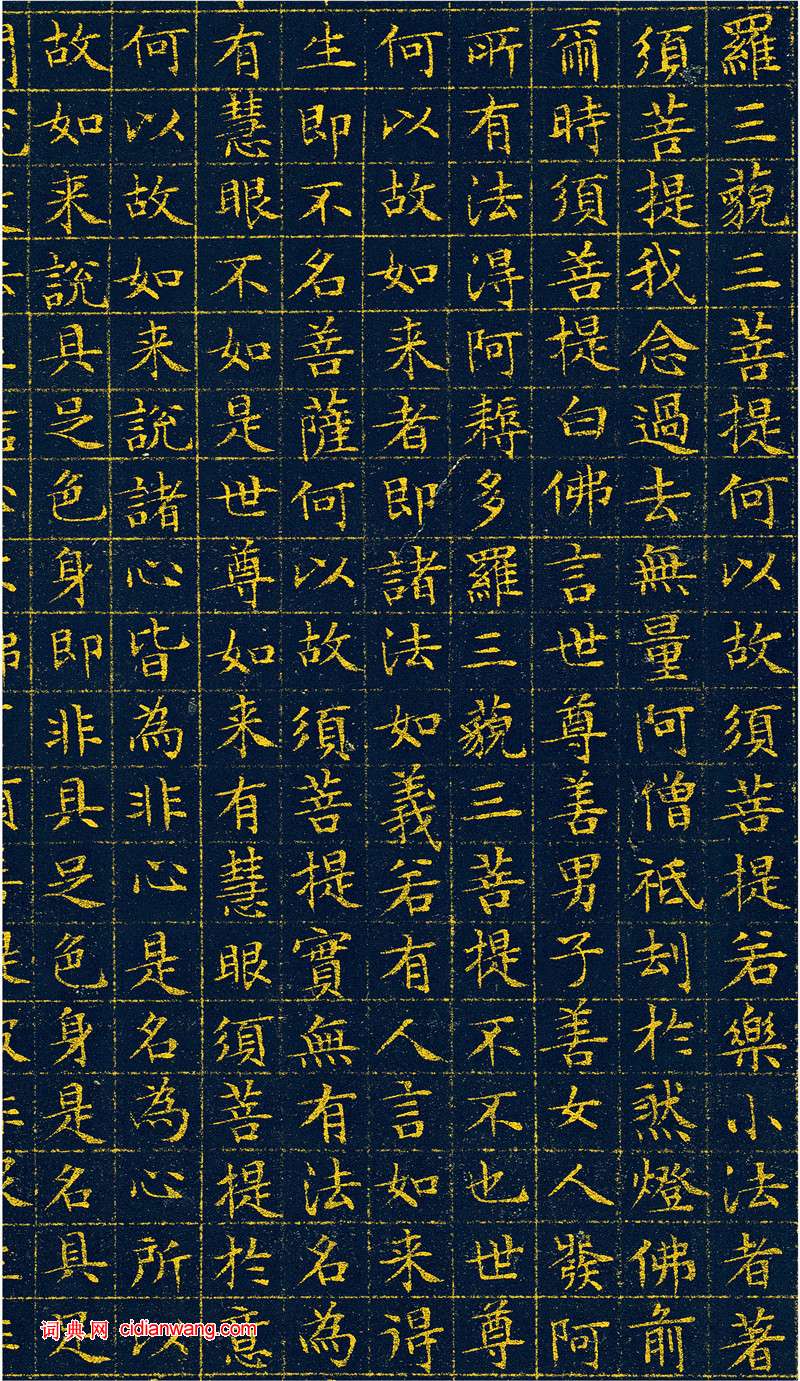 羅三藐三菩提何以故須菩提若樂小法者著
須菩提我念過去無量阿僧祇刦於然燈佛前
爾時須菩提白佛言世尊善男子善女人發阿
所有法得阿耨多羅三藐三菩提不不也世尊
何以故如来者即諸法如義若有人言如来得
生即不名菩薩何以故須菩提實無有法名為
有慧眼不如是世尊如来有慧眼須菩提於意
何以故如来說諸心皆為非心是名為心所以
故如来說具足色身即非具足色身是名具足
词典网 cidianwang.com